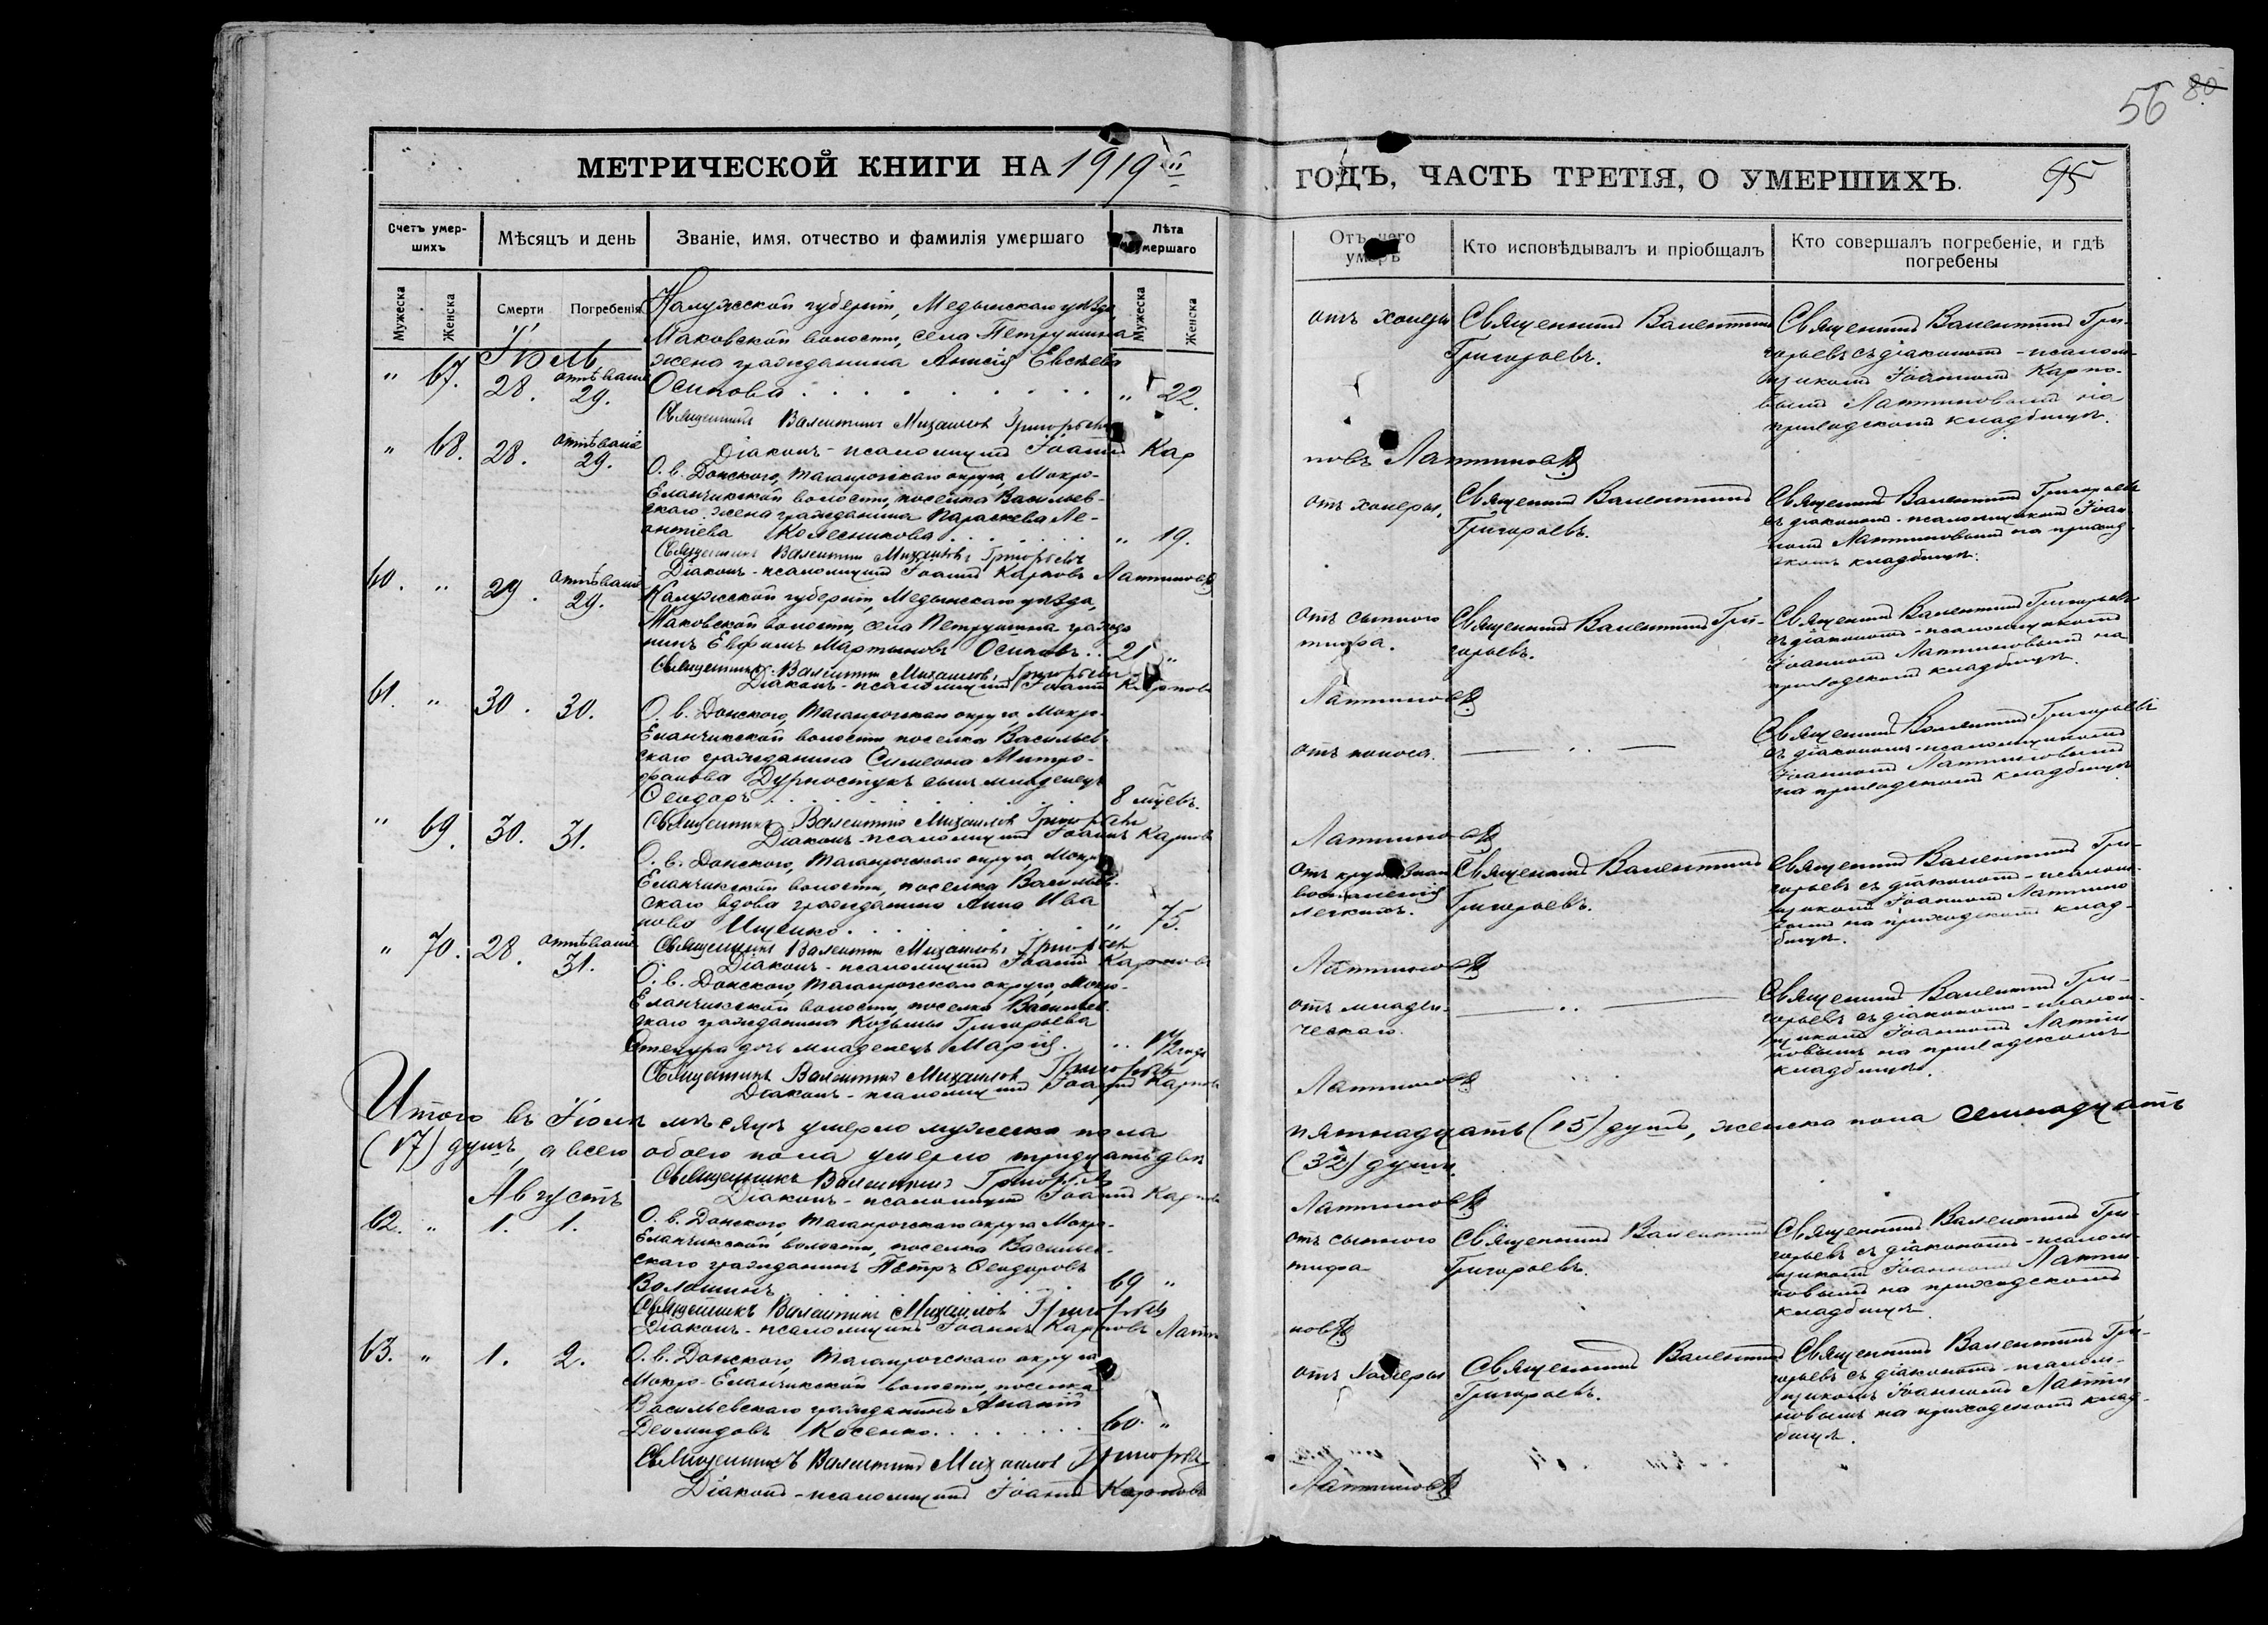 56 80
МЕТРИЧЕСКОЙ КНИГИ НА 1919 ГОДЪ, ЧАСТЬ ТРЕТІЯ, О УМЕРШИХЪ. 95
Счетъ умершихъ
Мѣсяцъ и день
Званіе, имя, отчество и фамилія умершаго
Лѣта умершаго
Отъ чего умеръ
Кто исповѣдывалъ и пріобщалъ
Кто совершалъ погребеніе, и гдѣ погребены
Мужеска
Женска
Смерти
Погребенія
Мужеска
Женска
Іюль
" 67. 28. отпѣваніе 29.
Калужской губерніи, Медынскаго уѣзда,
Маковской волости, села Петрушина
жена гражданина Анисія Евсѣева
Осипова " 22.
отъ холеры
Священникъ Валентинъ
Григорьевъ.
Священникъ Валентинъ Гри-
горьевъ съ діакономъ-псалом-
щикомъ Іоанномъ Карпо-
вымъ Лаптиновымъ на
приходскомъ кладбищѣ.
Священникъ Валентинъ Михаиловъ Григорьевъ
Діаконъ-псаломщикъ Іоаннъ Карповъ Лаптиновъ
" 68. 28. отпѣваніе 29.
О. в. Донского, Таганрогскаго округа, Мокро-
Еланчикской волости, поселка Васильев-
скаго жена гражданина Параскева Ле-
онтіева Колесникова " 19.
отъ холеры.
Священникъ Валентинъ
Григорьевъ.
Священникъ Валентинъ Григорьевъ
съ діакономъ-псаломщикомъ Іоан-
номъ Лаптиновымъ на приход-
скомъ кладбищѣ.
Священникъ Валентинъ Михаиловъ Григорьевъ
Діаконъ-псаломщикъ Іоаннъ Карповъ Лаптиновъ
60. " 29. отпѣваніе 29.
Калужской губерніи, Медынскаго уѣзда,
Маковской волости, села Петрушина гражда
нинъ Евфимъ Мартыновъ Осиповъ 21 "
отъ сыпного
тифа.
Священникъ Валентинъ Гри-
горьевъ.
Священникъ Валентинъ Григорьевъ
съ діакономъ-псаломщикомъ
Іоанномъ Лаптиновымъ на
приходскомъ кладбищѣ.
Священникъ Валентинъ Михаиловъ Григорьевъ
Діаконъ-псаломщикъ Іоаннъ Карповъ Лаптиновъ
61. " 30. 30.
О. в. Донского, Таганрогскаго округа, Мокро-
Еланчикской волости поселка Васильев-
скаго гражданина Симеона Митро-
фанова Дурностукъ сынъ младенецъ
Ѳеодоръ 8 мѣсев.
отъ поноса.
Священникъ Валентинъ Григорьевъ
съ діакономъ-псаломщикомъ
Іоанномъ Лаптиновымъ
на приходскомъ кладбищѣ
Священникъ Валентинъ Михаиловъ Григорьевъ
Діаконъ-псаломщикъ Іоаннъ Карповъ Лаптиновъ
" 69. 30. 31.
О. в. Донского, Таганрогскаго округа, Мокро-
Еланчикской волости, поселка Васильев-
скаго вдова гражданина Анна Ива
нова Ищенко " 75.
отъ крупознаго
воспаленія
легкихъ.
Священникъ Валентинъ
Григорьевъ.
Священникъ Валентинъ Гри-
горьевъ съ діакономъ-псалом-
щикомъ Іоанномъ Лаптино
вымъ на приходскомъ клад-
бищѣ.
Священникъ Валентинъ Михаиловъ Григорьевъ
Діаконъ-псаломщикъ Іоаннъ Карповъ Лаптиновъ
" 70. 28. отпѣваніе 31.
О. в. Донского, Таганрогскаго округа, Мокро-
Еланчикской волости, поселка Васильев-
скаго гражданина Козьмы Григорьева
дочь младенецъ Марія. 1/2 года
отъ младен-
ческаго.
Священникъ Валентинъ Гри-
горьевъ съ діакономъ-псалом-
щикомъ Іоанномъ Лапти
новымъ на приходскомъ
кладбищѣ.
Священникъ Валентинъ Михаиловъ Григорьевъ
Діаконъ-псаломщикъ Іоаннъ Карповъ Лаптиновъ
Итого въ Іюлѣ мѣсяцѣ умерло мужеска пола пятнадцать (15) душъ, женска пола семнадцать
(17) душъ, а всего обоего пола умерло тридцать двѣ (32) души.
Священникъ Валентинъ Григорьевъ
Діаконъ-псаломщикъ Іоаннъ Карповъ Лаптиновъ
Августъ
62. " 1. 1.
О. в. Донского, Таганрогскаго округа Мокро-
Еланчикской волости, поселка Васильев-
скаго гражданинъ Петръ Ѳеодоровъ
Волошинъ 69 "
отъ сыпного
тифа
Священникъ Валентинъ
Григорьевъ.
Священникъ Валентинъ Гри-
горьевъ съ діакономъ-псалом-
щикомъ Іоанномъ Лапти-
новымъ на приходскомъ
кладбищѣ.
Священникъ Валентинъ Михаиловъ Григорьевъ
Діаконъ-псаломщикъ Іоаннъ Карповъ Лаптиновъ
63. " 1. 2.
О. в. Донского, Таганрогскаго округа
Мокро-Еланчикской волости, поселка
Васильевскаго гражданинъ Ананій
Деомидовъ Косенко 60. "
отъ холеры
Священникъ Валентинъ
Григорьевъ.
Священникъ Валентинъ Гри-
горьевъ съ діакономъ-псалом-
щикомъ Іоанномъ Лапти
новымъ на приходскомъ клад-
бищѣ.
Священникъ Валентинъ Михаиловъ Григорьевъ
Діаконъ-псаломщикъ Іоаннъ Карповъ Лаптиновъ